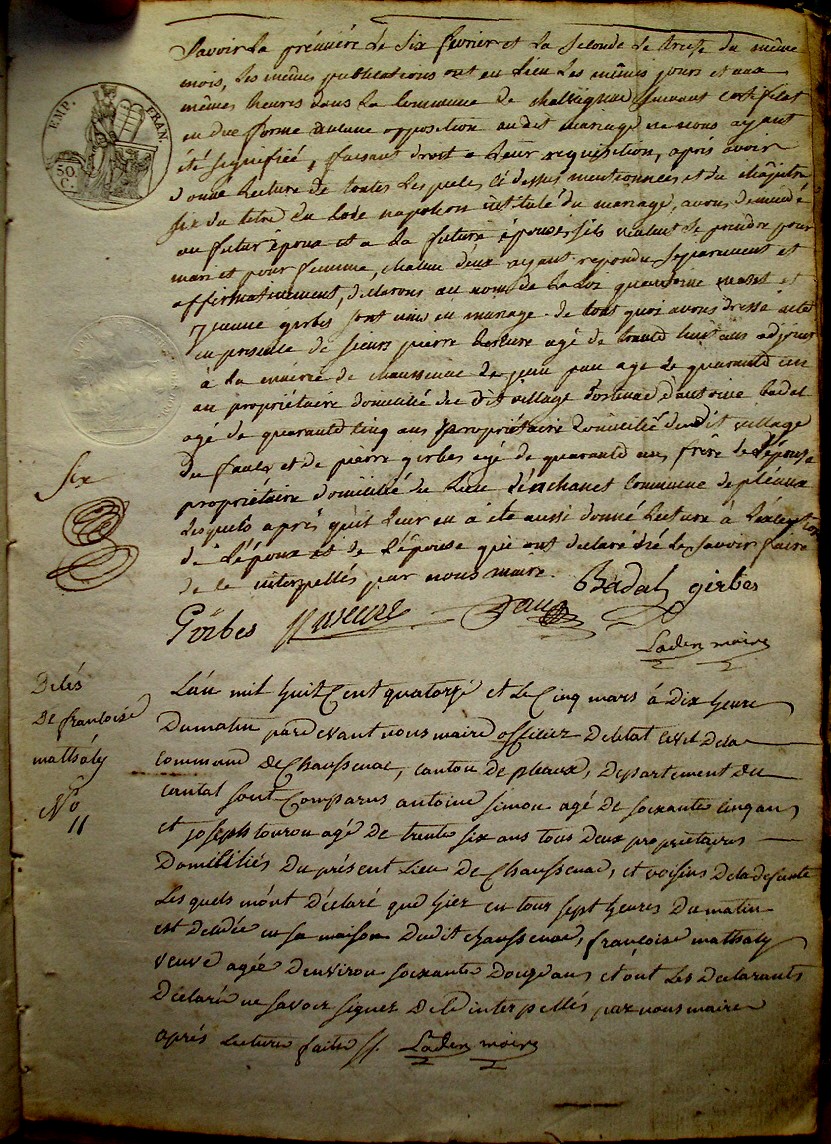 Savoir la première le six fevrier et la seconde le treize du même
mois, les mêmes publications ont eu lieu les mêmes jours et aux
mêmes heures dans la commune de suivant certificat
en due forme aucune opposition audit mariage ne nous ayant
été signifiée, faisant droit a leur requisition, après avoir
donné lecture de toutes les pieces ci dessus mentionnées et du chapitre
six du titre du Code napoleon intitulé du mariage, avons demandé
au futur époux et a la future épouse s'ils veulent se prendre pour
mari et pour femme, chacun deux ayant repondu separement et
affirmativement, declarons au nom de la loi que antoine et
jeanne girbes sont unis en mariage. de tout quoi avons dressé acte
en presence de sieurs pierre agé de trente huit ans adjoint
à la mairie de chaussenac de jean pau agé de quarante un
an propriétaire domicilié du dit village d'antoine badal
agé de quarante cinq ans propriétaire domicilié dudit village
du faulx et de pierre girbes agé de quarante ans frère de l'épouse
propriétaire domicilié du lieu d'Enchanet commune de pléaux
lesquels après qu'il leur en a été aussi donné lecture à l'exception
de l'époux et de l'épouse qui ont declaré ne le savoir faire
de ce interpellés par nous maire. Badal girbes
Girbes pau
Laden maire
EMP. FRAN.
50 C.
Six
Délés
De françoise
mathaly
No
11
L'an mil huit Cent quatorze et le Cinq mars à dix heure
Du matin pardevant nous maire officier De l'état civil de la
commune De Chaussenac, canton De pleaux, Departement Du
cantal sont Comparus antoine simon agé De soixante cinq ans
et joseph tourou agé De trente six ans tous deux propriétaires
Domiciliés Du présent Lieu De Chaussenac, et voisins De la defunte
Les quels m'ont Déclaré que hier en tour sept heures Du matin
est Dédée en sa maison Dudit chaussenac, françoise mathaly
veuve agée D'environ soixante Douze ans et ont Les Declarants
Déclaré ne savoir signer De ce interpellés par nous maire
après Lecture faite Laden maire